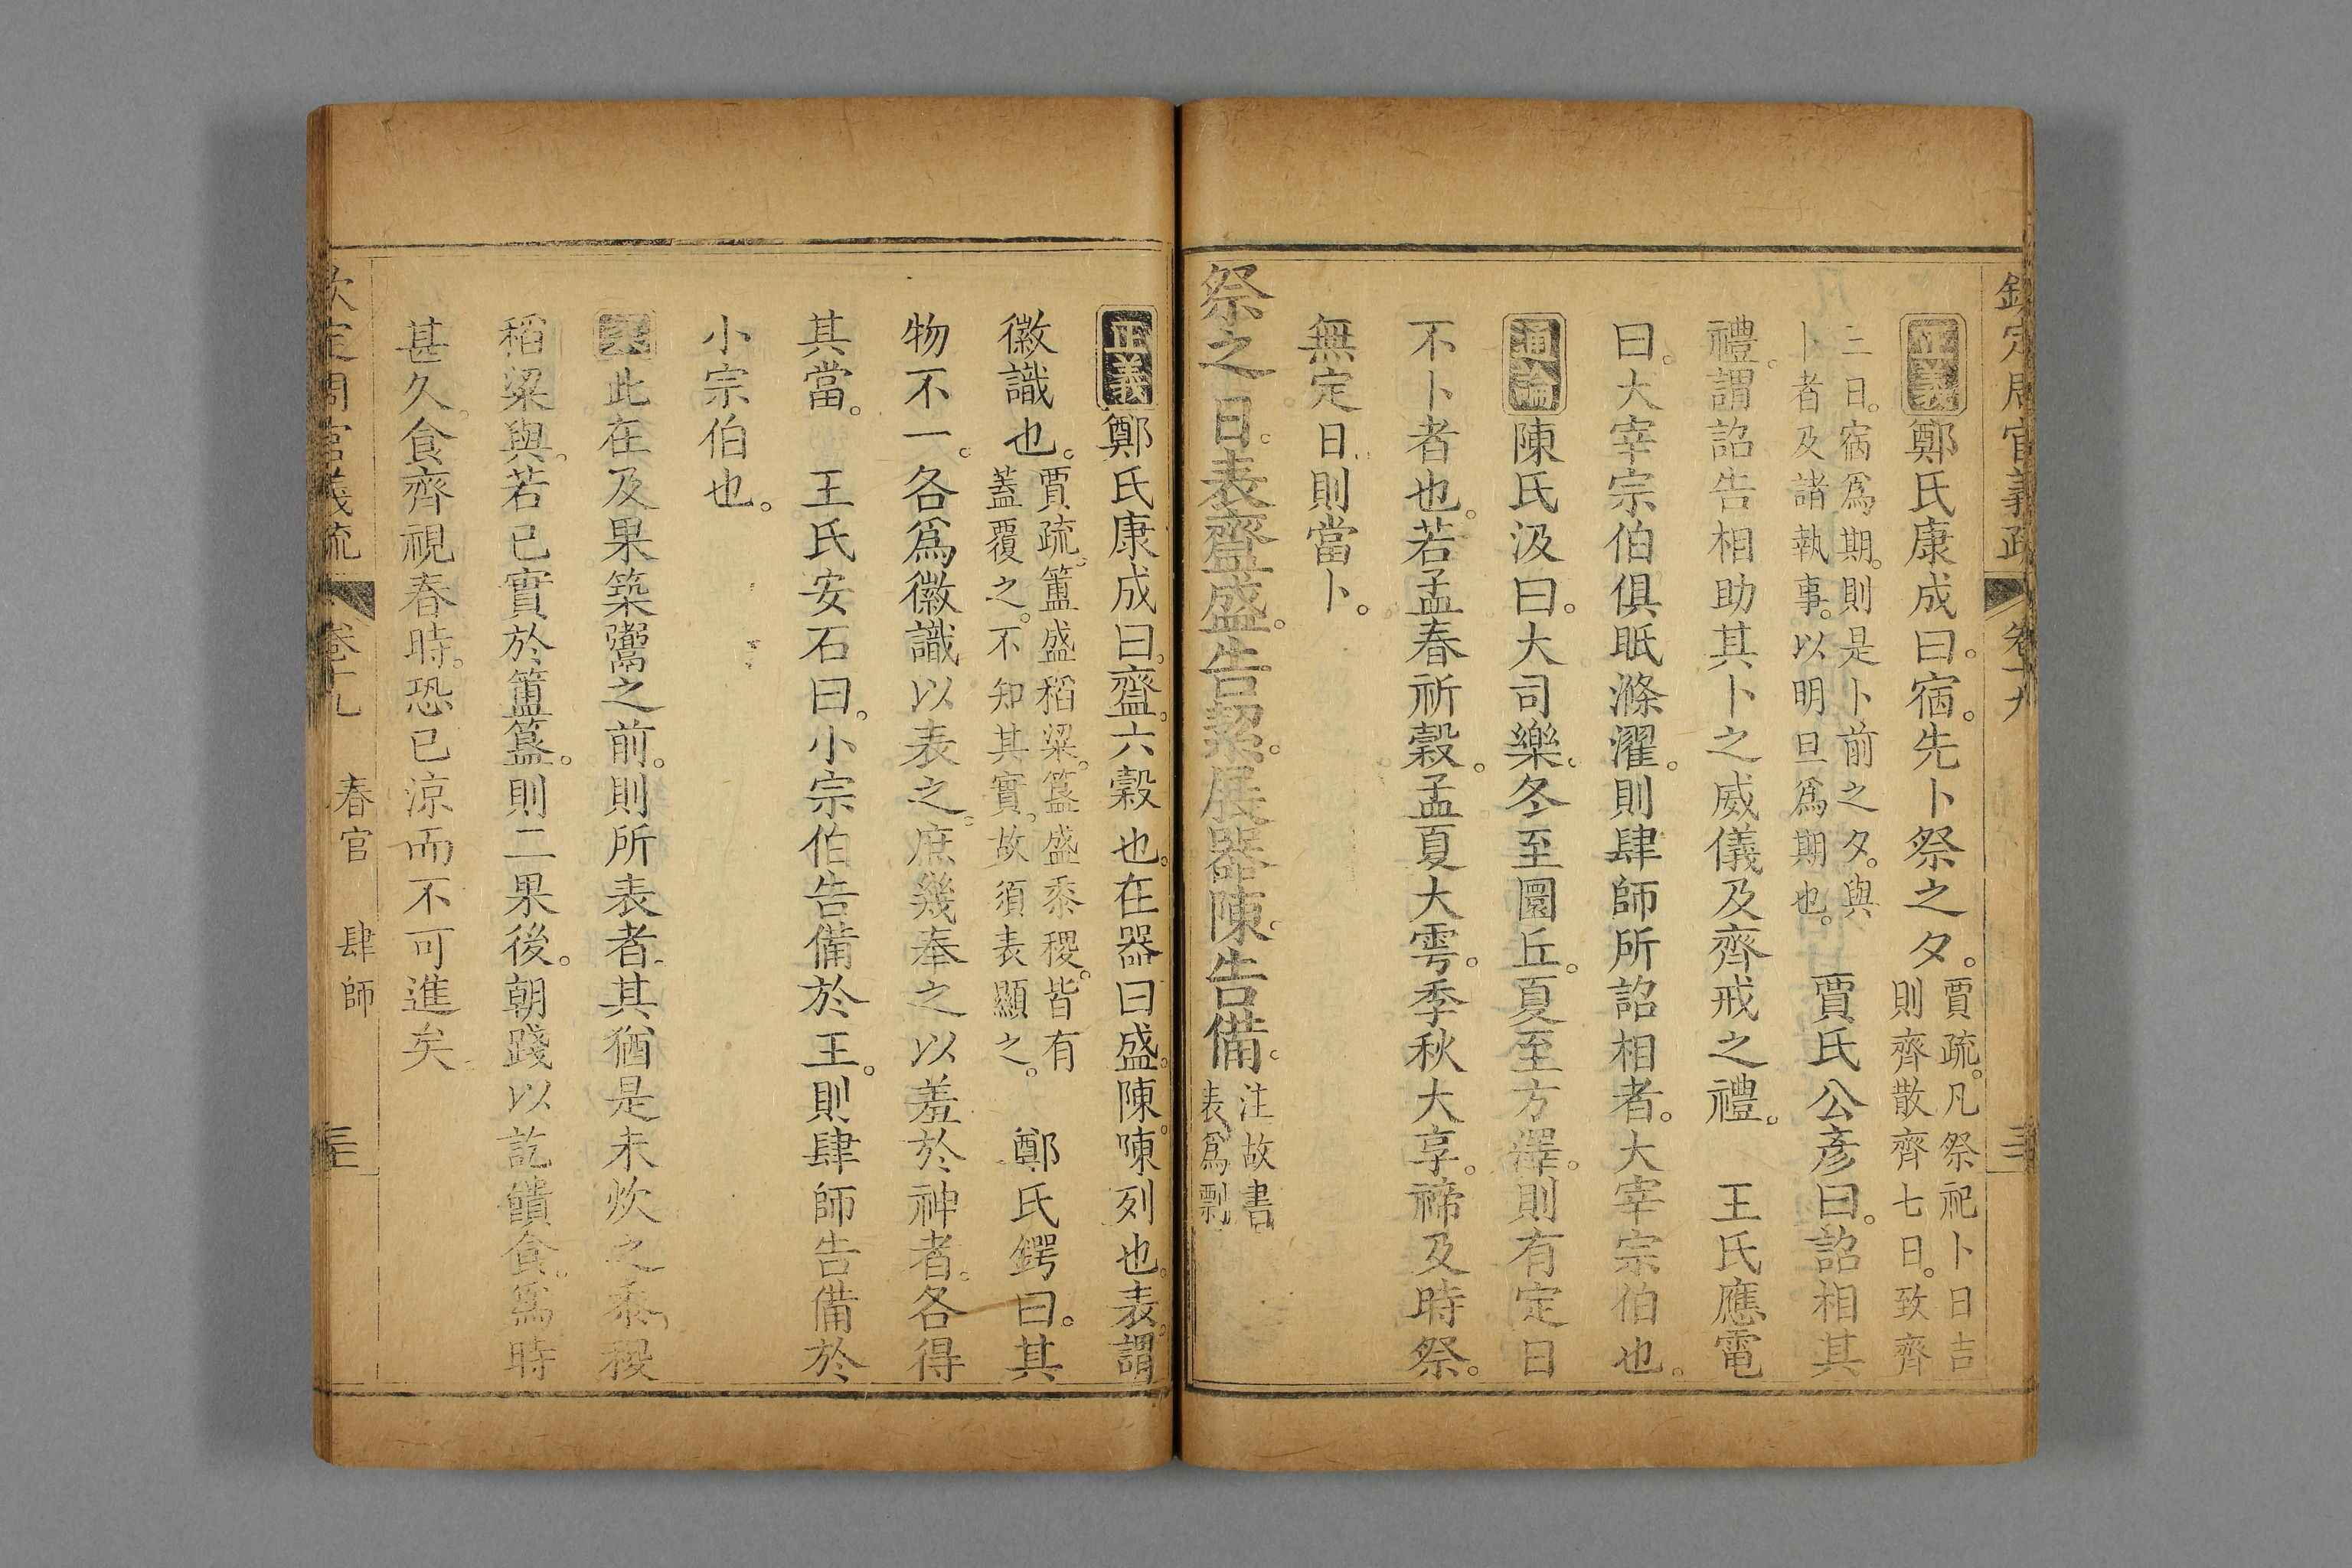 欽定周官義疏 卷十九
正義鄭氏康成曰。宿。先卜祭之夕。賈疏。凡祭祀卜日吉
則齊散齊七日。致齊
三日。宿爲期。則是卜前之夕。與
卜者及諸執事。以明旦爲期也。賈氏公彥曰。詔相其
禮。謂詔告相助其卜之威儀及齊戒之禮。 王氏應電
曰。大宰宗伯俱眂滌濯。則肆師所詔相者。大宰宗伯也。
通論陳氏汲曰。大司樂。冬至圜丘。夏至方澤。則有定日
不卜者也。若孟春祈穀。孟夏大雩。季秋大享。禘及時祭。
無定日則當卜。
祭之日。表齍盛。告絜。展器陳。告備。注故書
表爲剽
正義鄭氏康成曰。齍。六穀也。在器曰盛。陳。陳列也。表。謂
徽識也。賈疏。簠盛稻粱。簋盛黍稷。皆有
蓋覆之。不知其實。故須表顯之。 鄭氏鍔曰。其
物不一。各爲徽識以表之。庶幾奉之以羞於神者。各得
其當。 王氏安石曰。小宗伯告備於王。則肆師告備於
小宗伯也。
此在及果築鬻之前。則所表者。其猶是未炊之黍稷
稻粱與。若已實於簠簋。則二果後。朝踐以訖饋食。爲時
甚久。食齊視春時。恐已涼而不可進矣。
欽定周官義疏 卷十九 春官 肆師